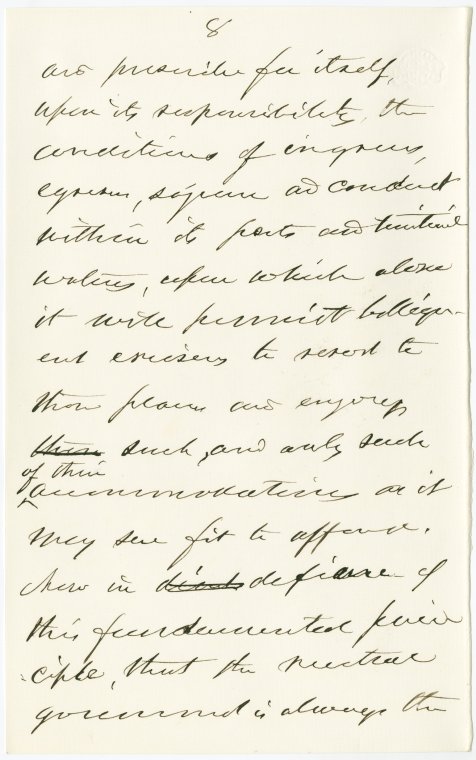 8
and prescribe for itself,
upon its responsibility, the
conditions of ingress,
egress, sojourn and conduct
within its ports and territorial
waters, upon which alone
it will permit belliger-
ent cruisers to resort to
those places and enjoy
such, and only such
of their
accommodations as it
may see fit to afford.
Now in defiance of
this fundamental prin
ciple, that the neutral
government is always the